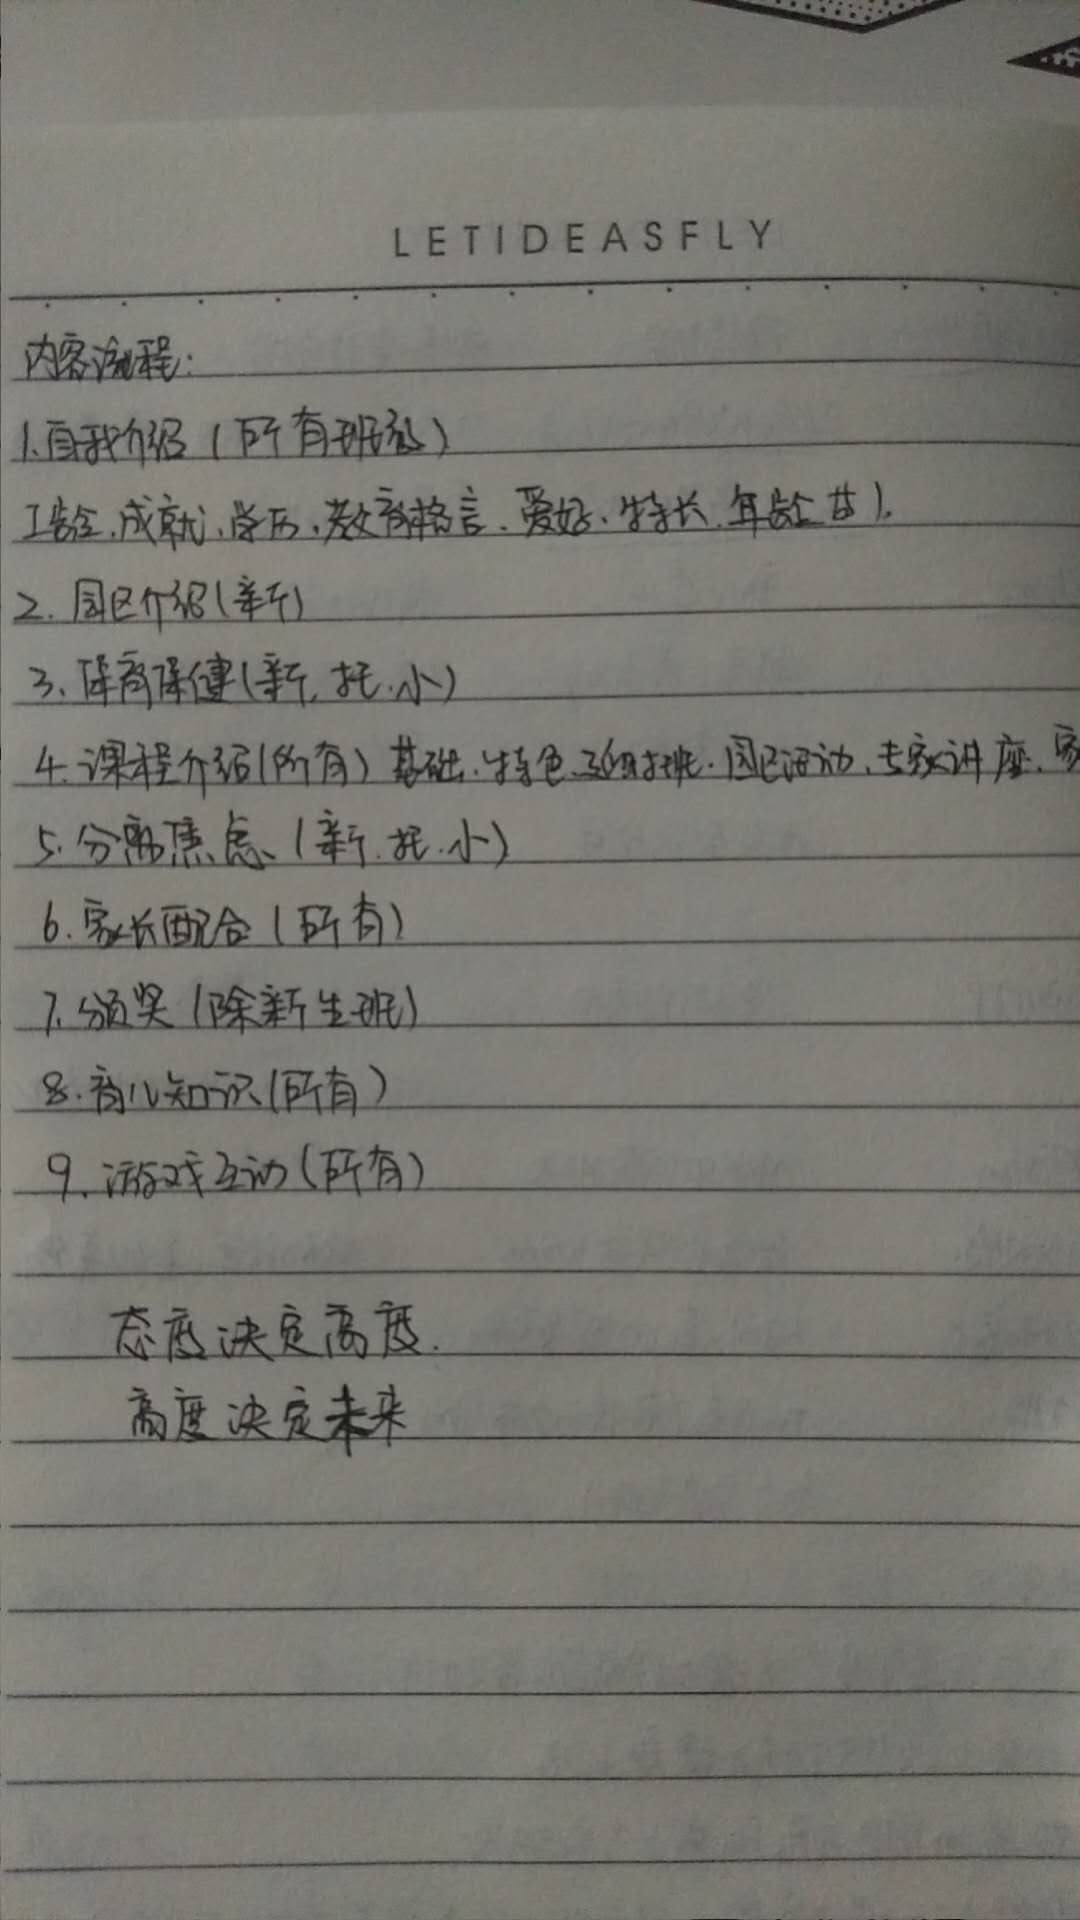 LETIDEASFLY
内容流程:
1.自我介绍(所有班级)
工龄.成就.学历.教育格言.爱好.特长.年龄等).
2.园区介绍(新)
3.保育保健(新.托.小)
4.课程介绍(所有)基础.特色.延时班.园区活动.专家讲座.家
5.分离焦虑(新.托.小)
6.家长配合(所有)
7.颁奖(除新生班)
8.育儿知识(所有)
9.游戏互动(所有)
态度决定高度.
高度决定未来